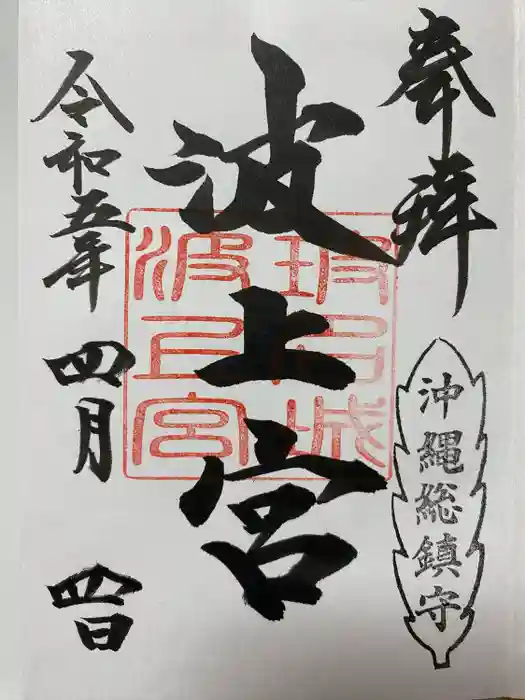 奉拝
沖縄総鎮守
波上宮
令和五年 四月 四日
波上宮